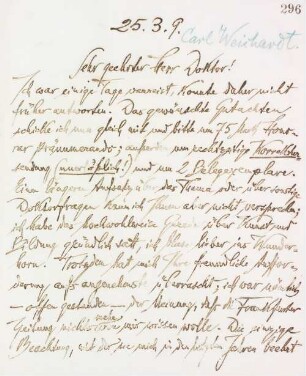 296
25. 3. 9.
Carl Weichardt.
Sehr geehrter Herr Doktor!
Ich war einige Tage verreist, konnte daher nicht
früher antworten. Das gewünschte Gutachten
schicke ich nun gleich mit und bitte um 75 Mark Hono-
rar Pränumerando; außerdem um rechtzeitige Korrektur-
sendung (unerläßlich!) und um 2 Belegexemplare.
Einen längern Aufsatz über das Thema oder über sonstige
ich kann ich Ihnen aber nicht versprechen,
ich habe das über Kunst und
Bildung gründlich satt, ich lieber ins Wunder-
horn. Trotzdem hat mich Ihre freundliche Auffor-
derung aufs angenehmste überrascht; ich war nämlich
– offen gestanden – der Meinung, daß die Frankfurter
Zeitung nichts mehr von mir wissen wolle. Die einzige
Beachtung, mit der sie mich in den letzten Jahren beehrt